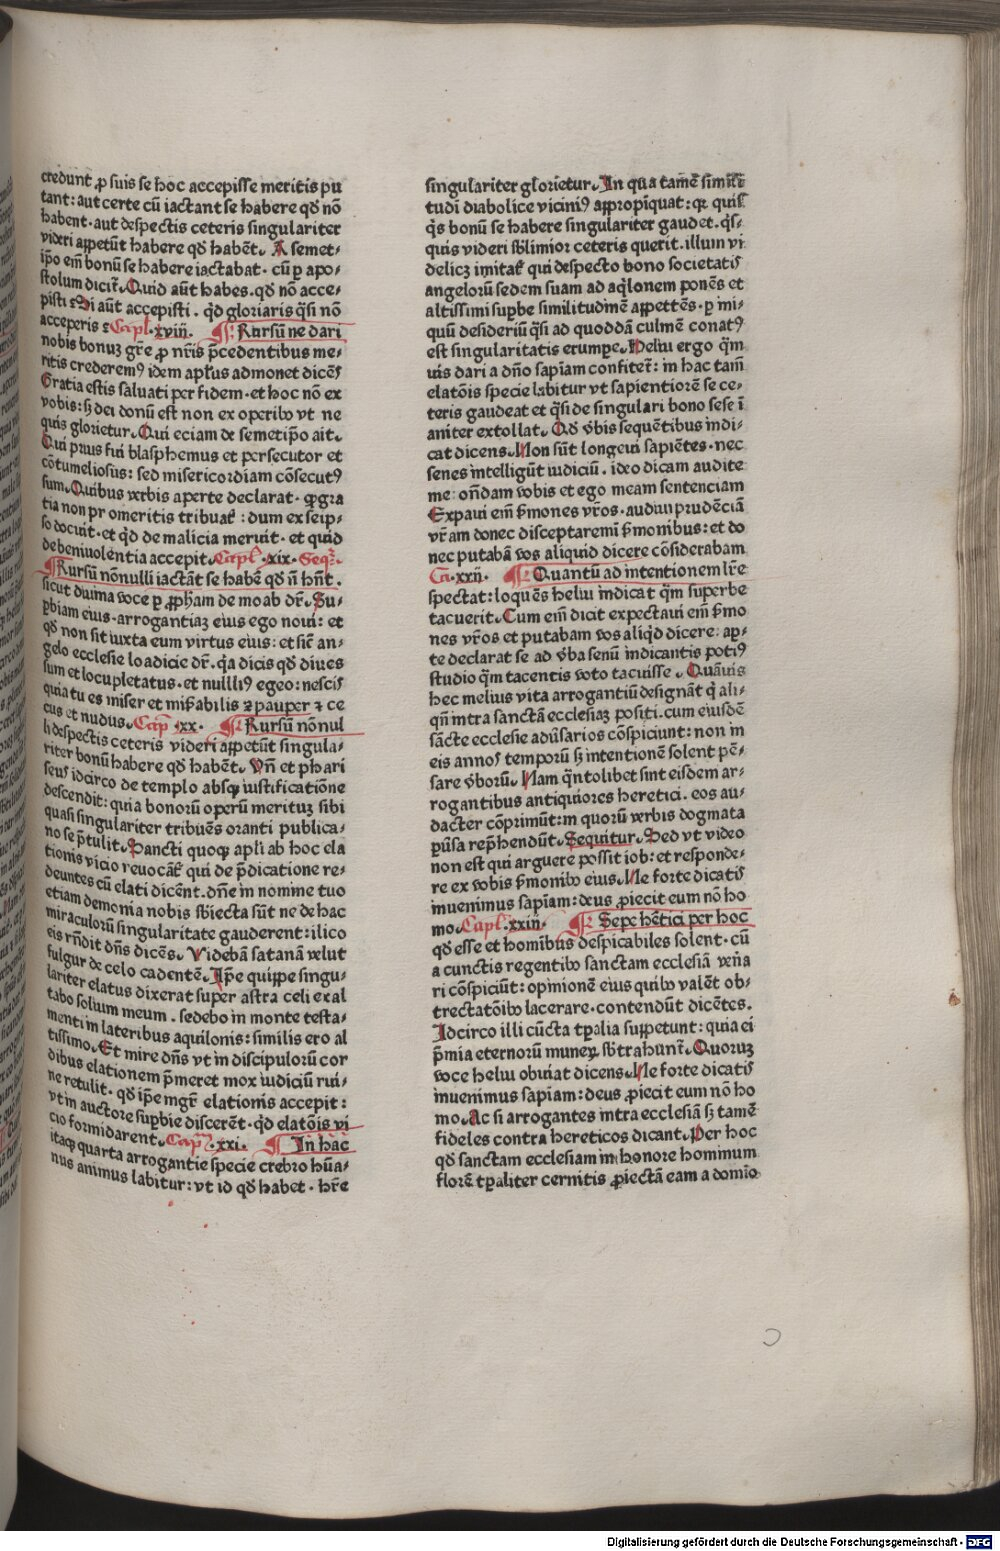 credunt ꝓ suis se hoc accepisse meritis pu
tant: aut certe cū iactant se habere qđ nō
habent · aut despectis ceteris singulariter
videri appetūt habere qđ habēt. A semet⸗
ip̄o em̄ bonū se habere iactabat · cū ꝑ apo⸗
stolum dicit̄. Quid aūt habes · qđ nō acce⸗
pisti ⁊ Si aūt accepisti . qđ gloriaris q̄si nō
acceperis ⁊ Capl̄. xviij. ¶ Rursū ne dari
nobis bonuʒ gr̄e ꝓ nr̄is p̄cedentibus me⸗
ritis crederemꝰ idem apl̄us admonet dicēs
Gratia estis saluati per fidem · et hoc nō ex
vobis: sʒ dei donū est non ex operibꝰ vt ne
quis glorietur. Qui eciam de semetip̄o ait.
Qui prius fui blasphemus et persecutor et
cōtumeliosus: sed misericordiam cōsecutꝰ
sum. Quibus verbis aperte declarat · qꝙ gra
tia non pro meritis tribuat̄ : dum ex seip⸗
so docuit · et qđ de malicia meruit · et quid
de beniuolentia accepit. Capl̄. xix. Seqr̄.
¶ Rursū nōnulli iactāt se habē qđ n̄ hn̄t .
sicut diuina voce ꝑ ꝓph̄am de moab dr̄. Su⸗
ꝑbiam eius · arrogantiaʒ eius ego noui: et
qđ non sit iuxta eum virtus eius: et sic̄ an⸗
gelo ecclesie loadicie dr̄. qa dicis qđ diues
sum et locupletatus · et nullliꝰ egeo: nescis
quia tu es miser et miẜabilis ⁊ pauper ⁊ ce
cus et nudus. Cap̄ .xx. ¶ Rursū nōnul
li despectis ceteris videri appetūt singula⸗
riter bonū habere qđ habēt. Vn̄ et phari
seus idcirco de templo absqꝫ iustificatiōne
descendit: quia bonorū operū merituʒ sibi
quasi singulariter tribuēs oranti publica⸗
no se p̄tulit. Sancti quoqꝫ apl̄i ab hoc ela
tionis vicio reuocāt̄ qui de p̄dicatione re⸗
deuntes cū elati dicēnt. dn̄e in nomine tuo
etiam demonia nobis sb̄iecta sūt ne de hac
miraculorū singularitate gauderent: ilico
eis rn̄dit dn̄s dicēs. Videbā satanā velut
fulgur de celo cadentē. Ip̄e quippe singu⸗
lariter elatus dixerat super astra celi exal
tabo solium meum . sedebo in monte testa⸗
menti in lateribus aquilonis: similis ero al
tissimo. Et mire dn̄s vt in discipulorū cor
dibus elationem p̄meret mox iudiciū rui⸗
ne retulit · qđ ip̄e mgr̄ elationis accepit :
vt in auctore suꝑbie discerēt · qđ elatōis vi
cio formidarent. Cap̄. xxi. ¶ In hac
itaqꝫ quarta arrogantie specie crebro hūa⸗
nus animus labitur: vt id qđ habet · hr̄e
singulariter glorietur. In qua tamē simili⸗
tudī diabolice viciniꝰ appropīquat: qꝛ quis
qꝫs bonū se habere singulariter gaudet · q̄s⸗
quis videri sb̄limior ceteris querit . illum vi
delicʒ imitat̄ qui despecto bono societatis
angelorū sedem suam ad aq̇lonem ponēs et
altissimi suꝑbe similitudīnē appetēs · ꝑ ini⸗
quū desideriū q̄si ad quoddā culmē conatꝰ
est singularitatis erumpe. Heliu ergo q̄m⸗
uis dari a dn̄o sapiam confitet̄: in hac tam̄
elatōis specie labitur vt sapientiorē se ce⸗
teris gaudeat et q̄si de singulari bono sese ī
aniter extollat. Qđ v̄bis sequētibus indi⸗
cat dicens. Non sūt longeui sapiētes · nec
senes intelligūt iudiciū . ideo dicam audite
me · on̄dam vobis et ego meam sentenciam
Expaui em̄ ẜmones vr̄os · audiui prudēciā
vr̄am donec disceptaremi ẜmonibus: et do
nec putabā vos aliquid dicere cōsiderabam
Ca. xxij. ¶ Quantū ad intentionem lr̄e
spectat: loquēs heliu indicat q̄m superbe
tacuerit. Cum em̄ dicit expectaui em̄ ẜmo
nes vr̄os et putabam vos aliq̇d dicere: aꝑ⸗
te declarat se ad v̄ba senū indicantis potiꝰ
studio q̄m tacentis voto tacuisse. Quāuis
hec melius vita arrogantiū designāt q̇ ali⸗
qn̄ intra sanctā ecclesiaʒ positi . cum eiusdē
sācte ecclesie adūsarios cōspiciunt: non in
eis annos temporū sʒ intentionē solent pē⸗
sare v̄borū. Nam q̄ntolibet sint eisdem ar⸗
rogantibus antiquiores heretici . eos au⸗
dacter cōprimūt: in quorū verbis dogmata
ꝑūsa rep̄hendūt. Sequitur. Sed vt video
non est qui arguere possit iob: et responde⸗
re ex vobis ẜmonibꝰ eius. Ne forte dicatis
inuenimus sapiam: deus ꝓiecit eum nō ho
mo. Capl̄. xxiij. ¶ Sepe hētici per hoc
qđ esse et homībus despicabiles solent · cū
a cunctis regentibꝰ sanctam ecclesiā vēna
ri cōspiciūt: opinionē eius quibꝰ valēt ob⸗
trectatōibꝰ lacerare · contendūt dicētes.
Idcirco illi cūcta tꝑalia suppetunt: quia ei
p̄mia eternorū muneꝝ sb̄trahunt̄. Quoruʒ
voce heliu obuiat dicens. Ne forte dicatis
inuenimus sapiam: deus ꝓiecit eum nō ho
mo. Ac si arrogantes intra ecclesiā sʒ tamē
fideles contra hereticos dicant. Per hoc
qđ sanctam ecclesiam in honore hominum
florē tꝑaliter cernitis ꝓiectā eam a domīo
Digitalisierung gefördert durch die Deutsche Forschungsgemeinschaft - DFG